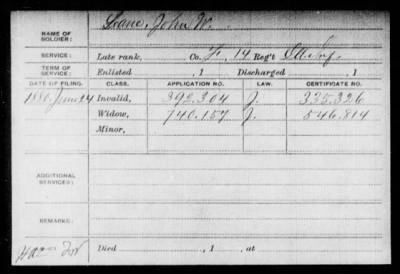 NAME OF SOLDIER: John W.
SERVICE: Late rank, Co. 14 Reg't Ills Inf.
TERM OF SERVICE: Enlisted , 1 Discharged , 1
DATE OF FILING. CLASS. APPLICATION NO. LAW. CERTIFICATE NO.
1880 June 24 Invalid, 392.304 J. 335.326
Widow, 740.157 J. 546.814
Minor,
ADDITIONAL SERVICES:
REMARKS:
Died , 1 , at